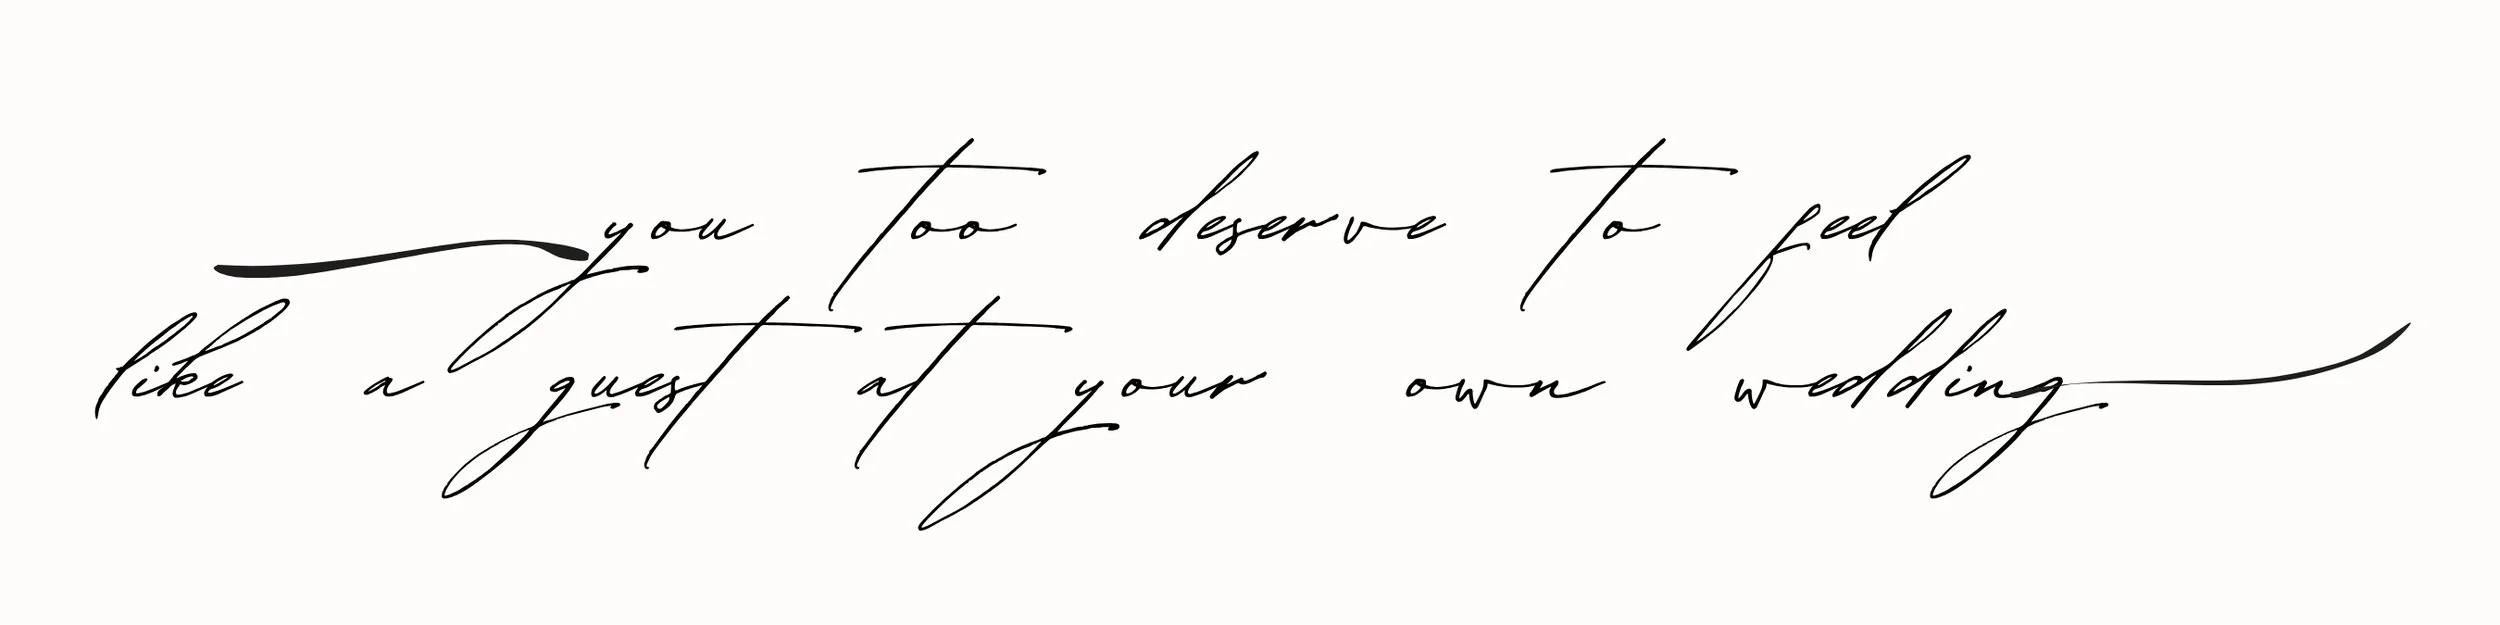 you too deserve to feel
like a guest at your own wedding